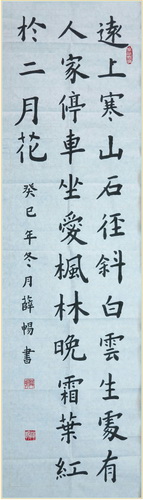 遠上寒山石徑斜白雲生處有
人家停車坐愛楓林晚霜葉紅
於二月花
癸巳年冬月薛暢書